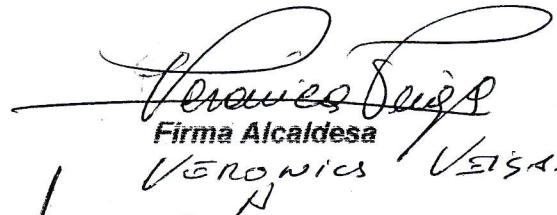 Veronica Veiga
Firma Alcaldesa
VERONICA VEIGA.